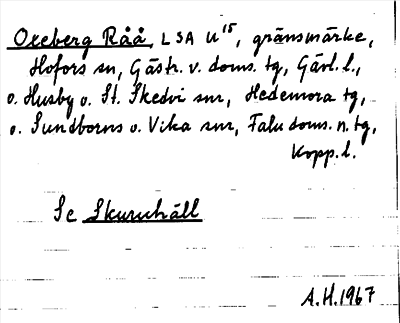 Oxeberg Råå, LSA U¹⁵, gränsmärke,
Hofors sn, Gästr. v. doms. tg, Gävl. l.,
o. Husby o. St. Skedvi snr, Hedemora tg,
o. Sundborns o. Vika snr, Falu doms. n. tg,
Kopp. l.
Se Skuruhäll
A.H. 1967